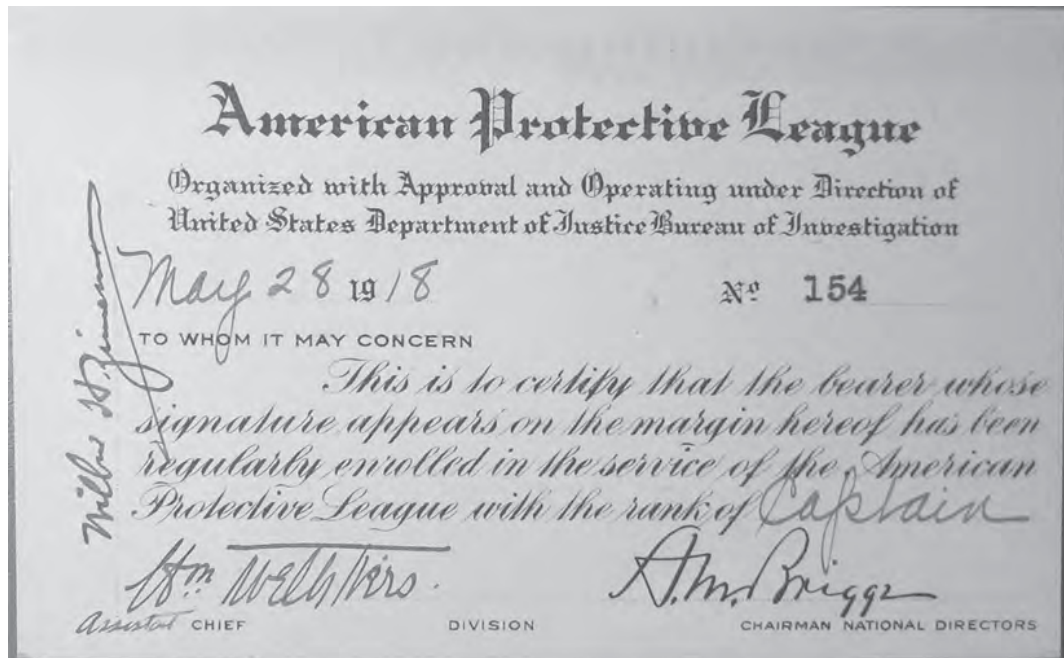 American Protective League
Organized with Approval and Operating under Direction of
United States Department of Justice Bureau of Investigation
May 28 1918 No 154
TO WHOM IT MAY CONCERN
This is to certify that the bearer whose
signature appears on the margin hereof has been
regularly enrolled in the service of the American
Protective League with the rank of Captain
Wm
A. M. Briggs
Assistant CHIEF DIVISION CHAIRMAN NATIONAL DIRECTORS
Wilbur H. Zimerman